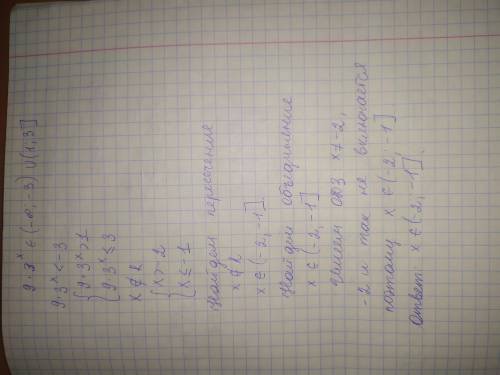 9·3ˣ ∈ (-∞, -3) ∪ (1, 3]
9·3ˣ < -3
{ 9·3ˣ > 1
{ 9·3ˣ ≤ 3
x ∉ R
{ x > -2
{ x ≤ -1
Найдем пересечение
x ∉ R
x ∈ (-2, -1]
Найдем объединение
x ∈ (-2, -1]
ОДЗ x ≠ -2,
-2 и так не включается
поэтому x ∈ (-2, -1]
Ответ x ∈ (-2, -1]